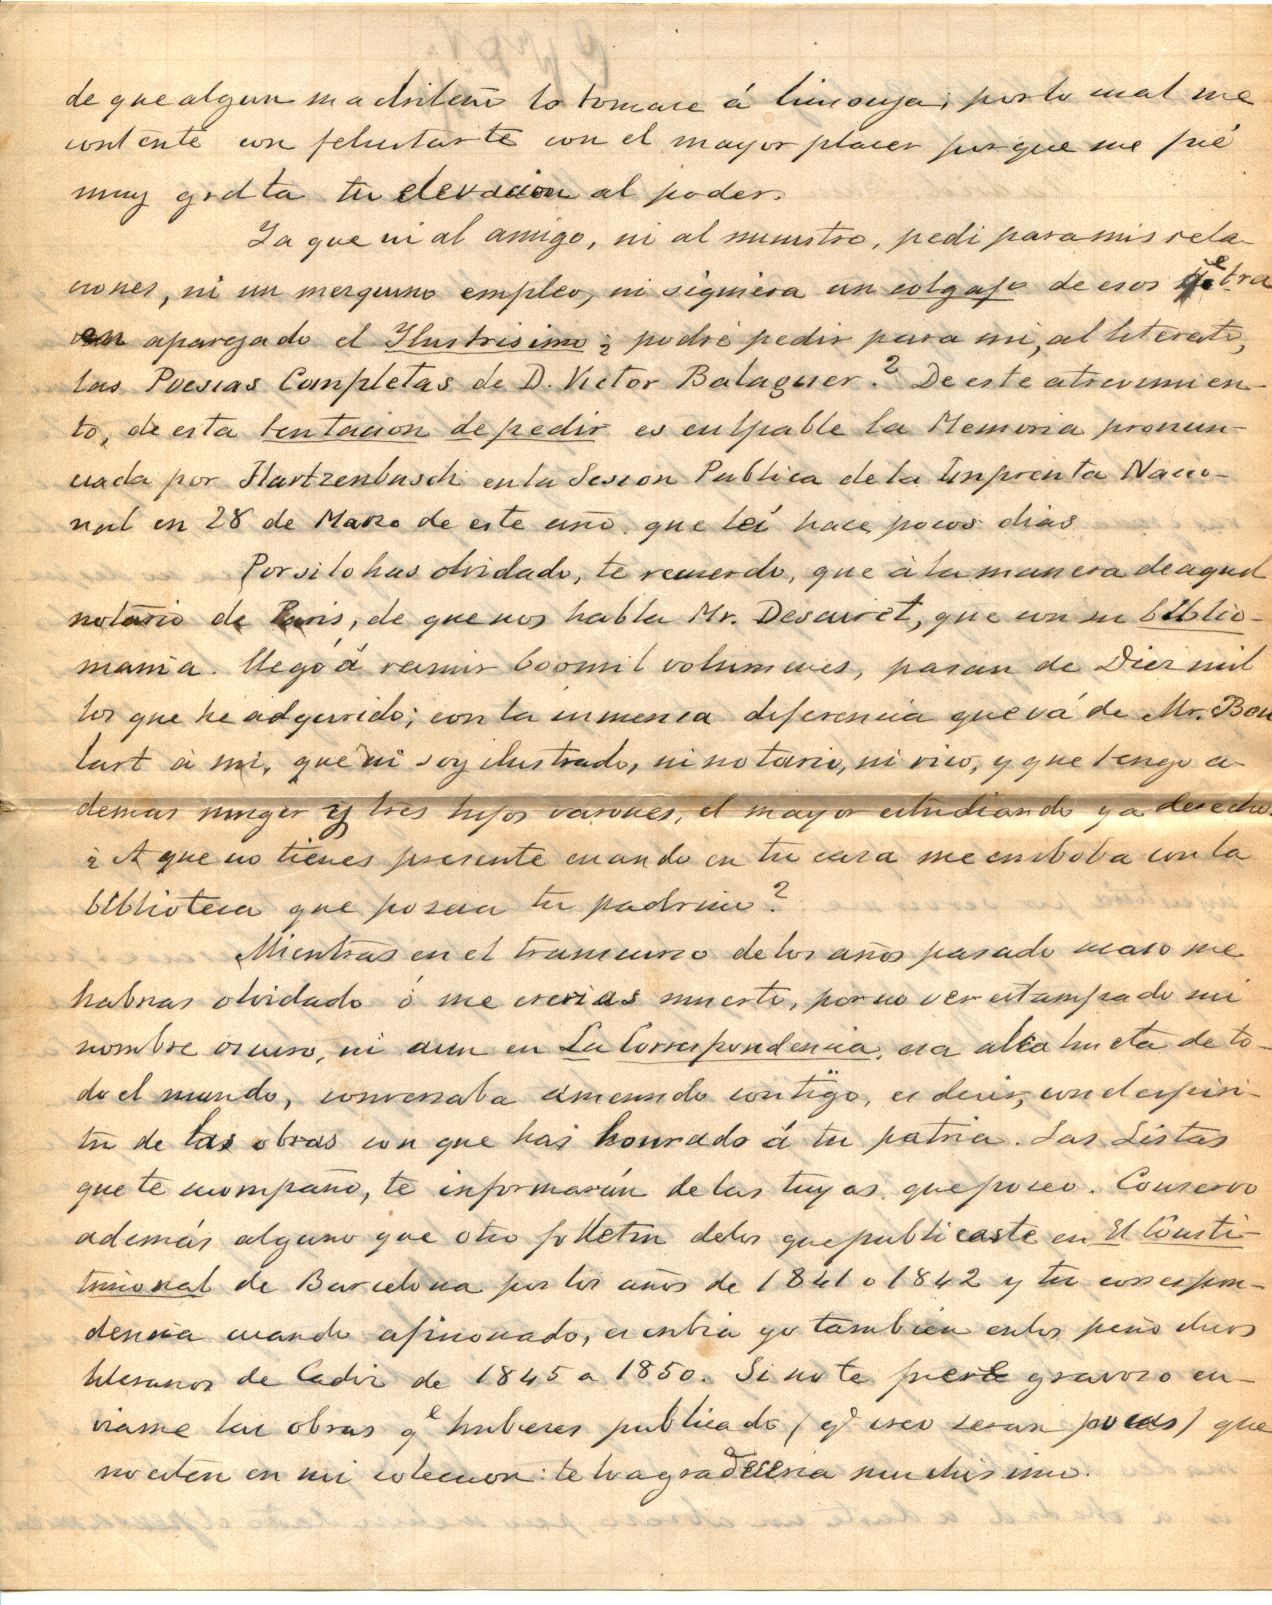 de que algun madrileño lo tomase á lisonja; por lo cual me
contenté con felicitarte con el mayor placer porque me fué
muy grata tu elevacion al poder.
Ya que ni al amigo, ni al ministro, pedi para mis rela-
ciones, ni un mezquino empleo, ni siquiera un colgajo de esos qe tra
en aparejado el Ilustrisimo ¿ podré pedir para mi, al literato,
las Poesias Completas de D. Victor Balaguer? De este atrevimien-
to, de esta tentacion de pedir es culpable la Memoria pronun-
ciada por Hartzenbusch en la Sesion Publica de la Imprenta Nacio-
nal en 28 de Marzo de este año que leí hace pocos dias
Por si lo has olvidado, te recuerdo, que á la manera de aquel
notario de Paris, de que nos habla Mr. Descuret, que con su biblio-
mania llegó á reunir 600 mil volumenes, pasan de Diez mil
los que he adquirido; con la inmensa diferencia que vá de Mr. Bou
lart á mi, que ni soy ilustrado, ni notario, ni rico, y que tengo a-
demas muger y tres hijos varones, el mayor estudiando ya derecho.
¿ A que no tienes presente cuando en tu casa me embobaba con la
biblioteca que poseia tu padrino?
Mientras en el transcurso de los años pasado acaso me
habrias olvidado ó me creerias muerto, por no ver estampado mi
nombre oscuro, ni aun en La Correspondencia, esa alcahueta de to-
do el mundo, conversaba á menudo contigo, es decir, con el espiri-
tu de las obras con que has honrado á tu patria. Las Listas
que te acompaño, te informarán de las tuyas que poseo. Conservo
además alguno que otro folletin de los que publicaste en El Consti-
tucional de Barcelona por los años de 1841 o 1842 y tu correspon-
dencia cuando aficionado, escribia yo tambien en los periodicos
literarios de Cadiz de 1845 a 1850. Si no te fuese gravoso en-
viarme las obras qe hubieses publicado (qe creo seran pocas) que
no esten en mi coleccion te lo agradeceria muchisimo.